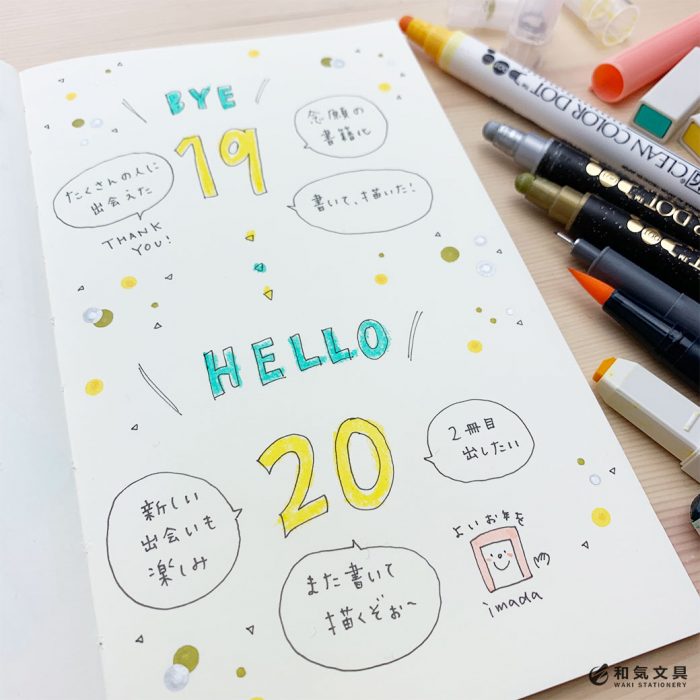 BYE
19
念願の
書籍化
たくさんの人に
出会えた
THANK
YOU!
書いて、描いた!
HELLO
20
2冊目
出したい
新しい
出会いも
楽しみ
また書いて
描くぞぉ〜
よいお年を
imada
CLEAN COLOR DOT
和気文具
WAKI STATIONERY